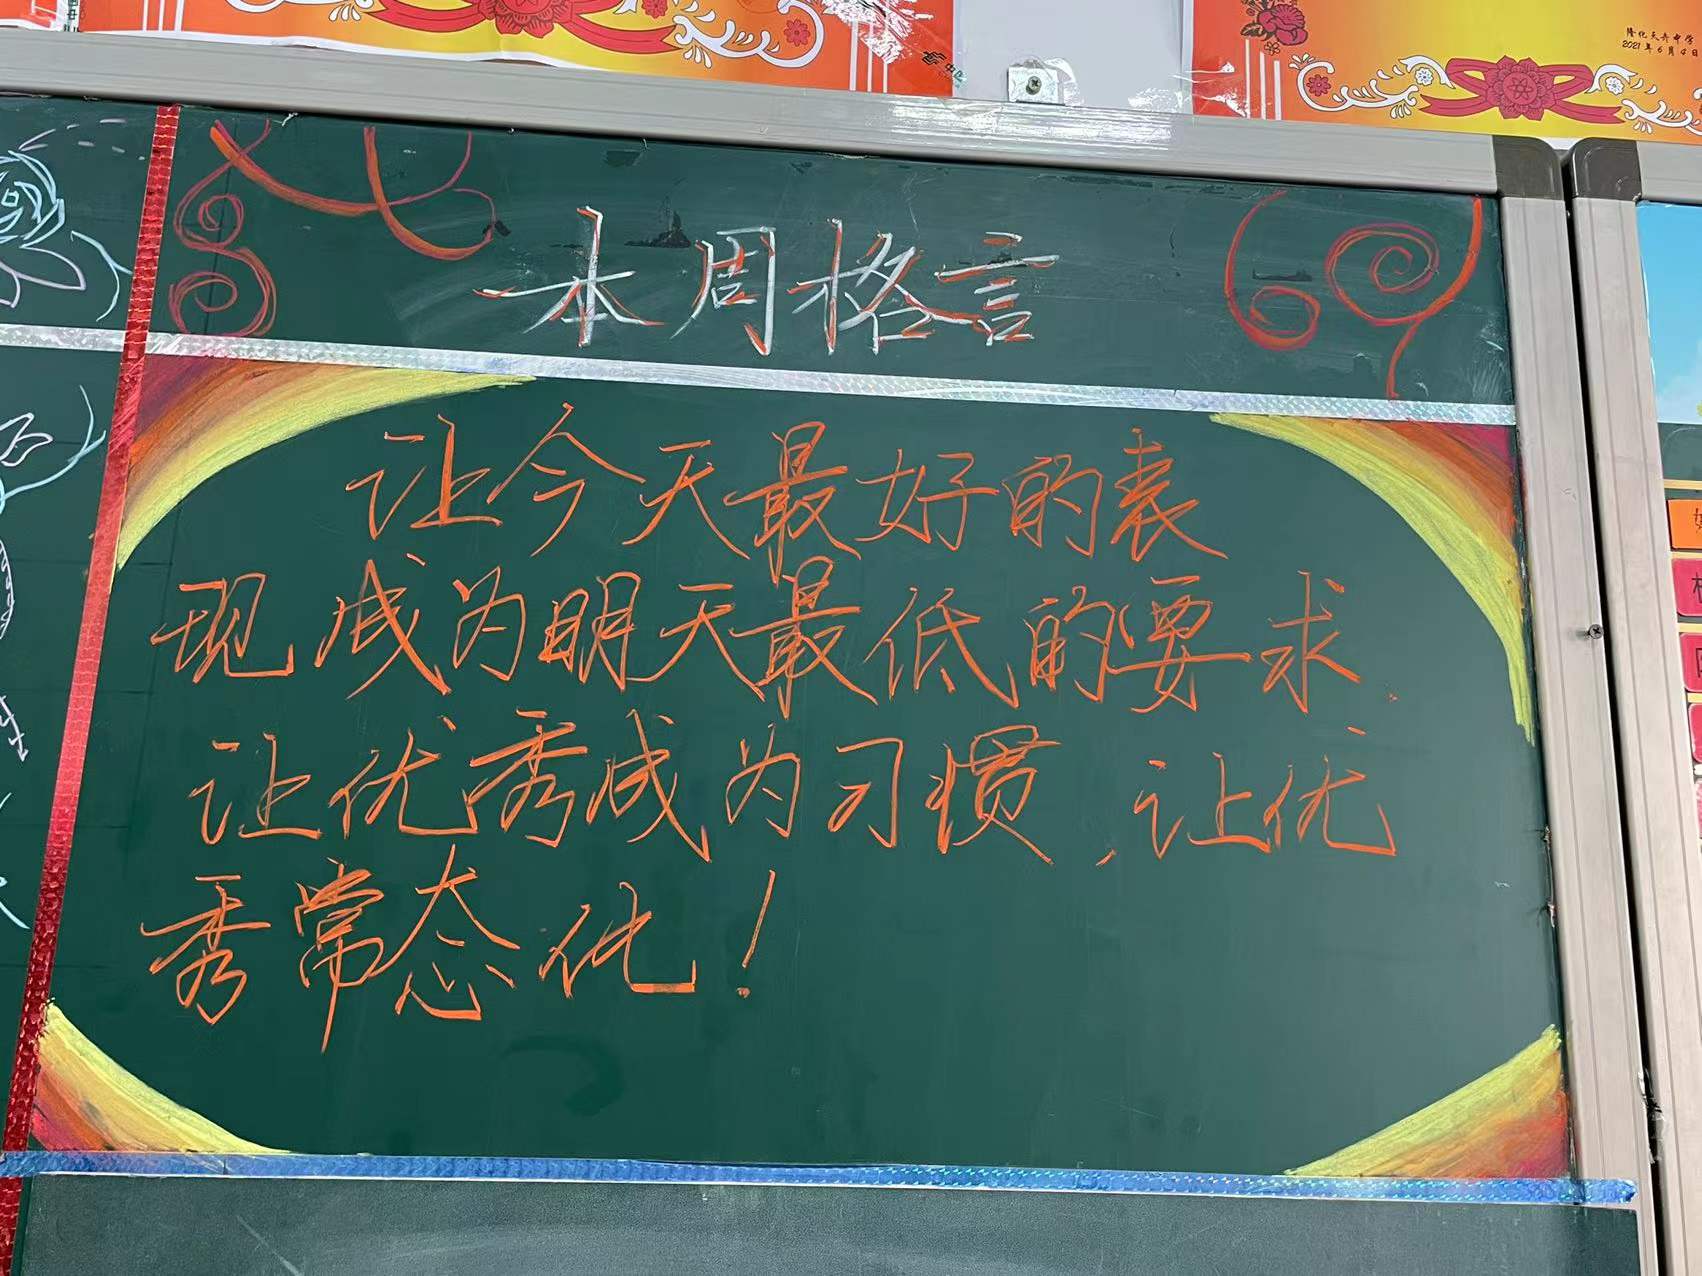 隆化天卉中学
2021年6月4日
本周格言
让今天最好的表
现成为明天最低的要求.
让优秀成为习惯,让优
秀常态化!